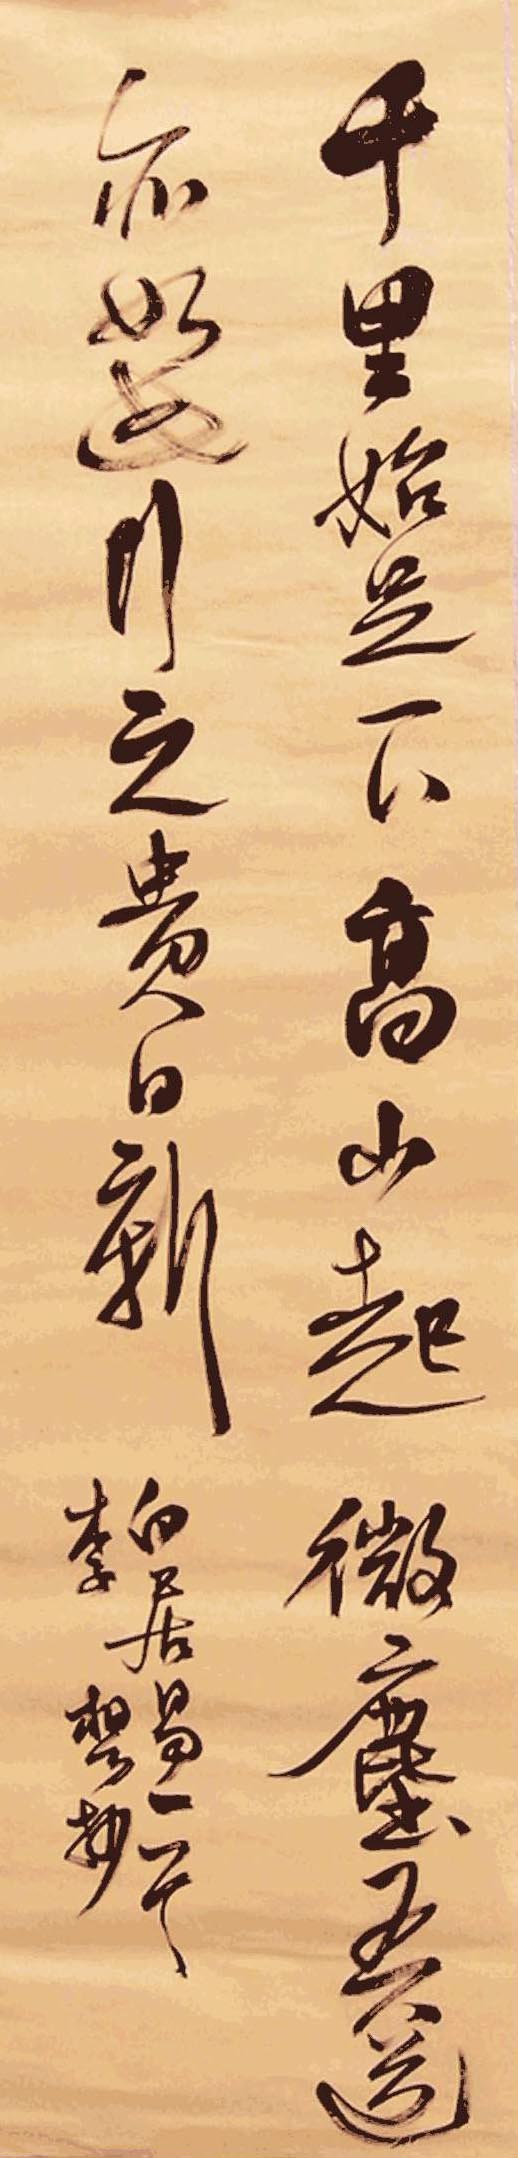 千里始足下高山起微塵吾道
亦如此行之貴日新
白居易一首
李